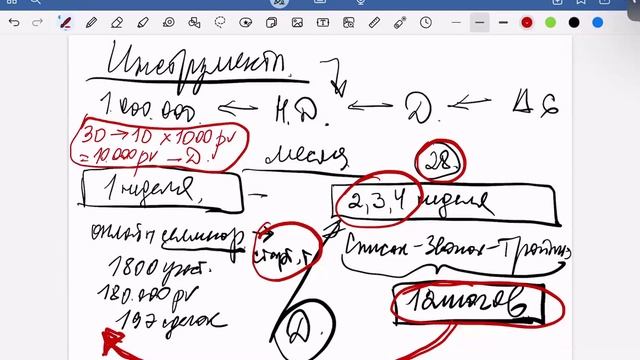 Инструменты.
1.000.000. ← Н.Д. ← Д. ←
30 → 10 × 1000 pv
= 10.000 pv — Д.
месяц
28.
1 неделя, —
2, 3, 4 неделя
онлайн семинар → старт,
Список-Звонок-Тройка
1800 участ.
180.000 pv
197 сделок
12 шагов
Д.